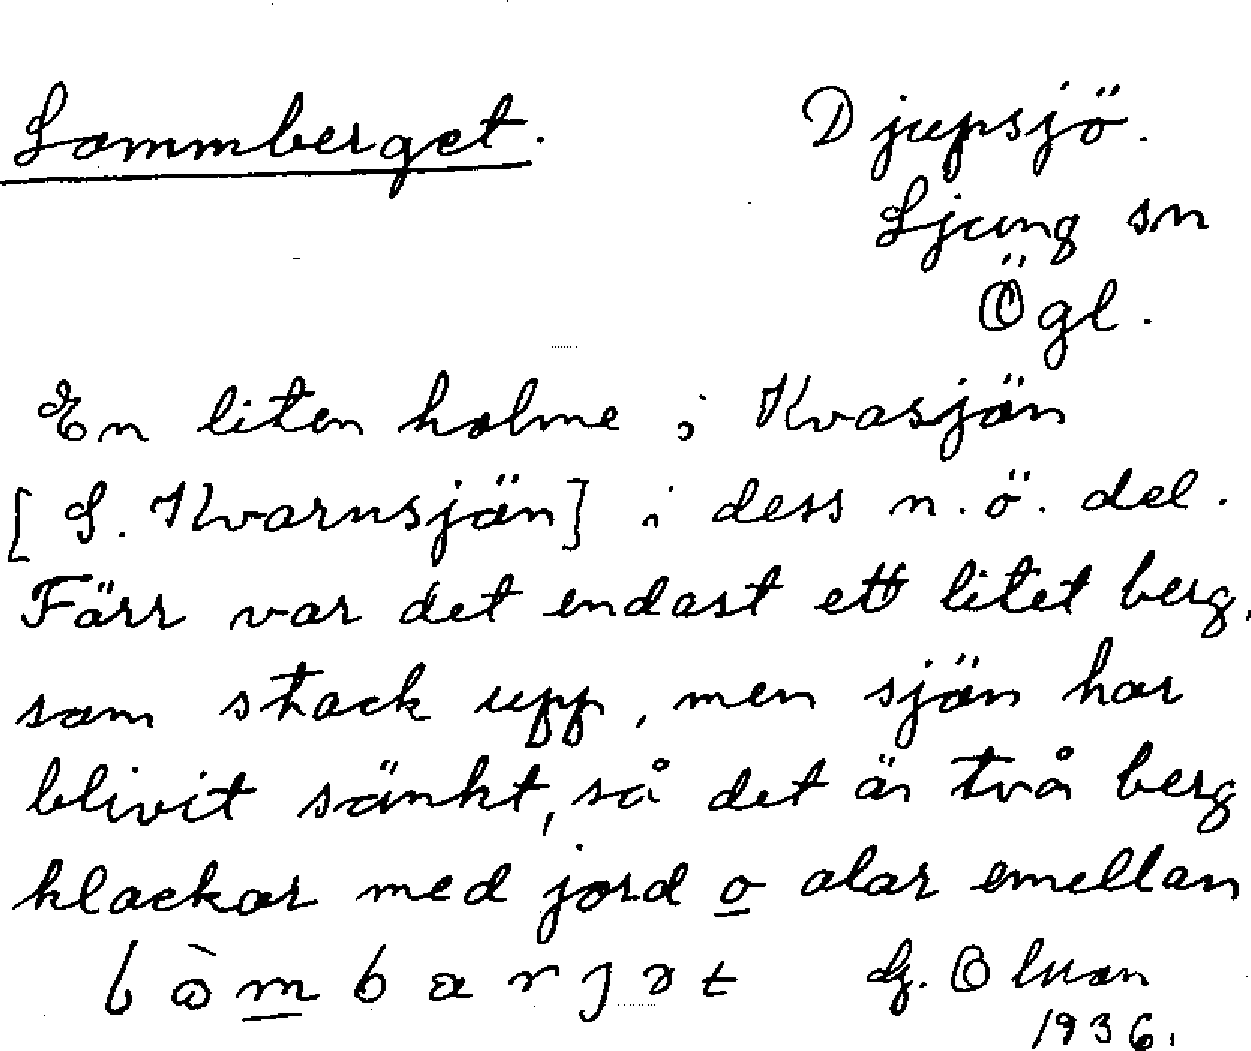 Lommberget.
Djupsjö.
Ljung sn
Ögl.
En liten holme i Kvasjön
[S. Kvarnsjön] i dess n.ö. del.
Förr var det endast ett litet berg,
som stack upp, men sjön har
blivit sänkt, så det är två berg
klackar med jord o alar emellan
G. Olson
1936.